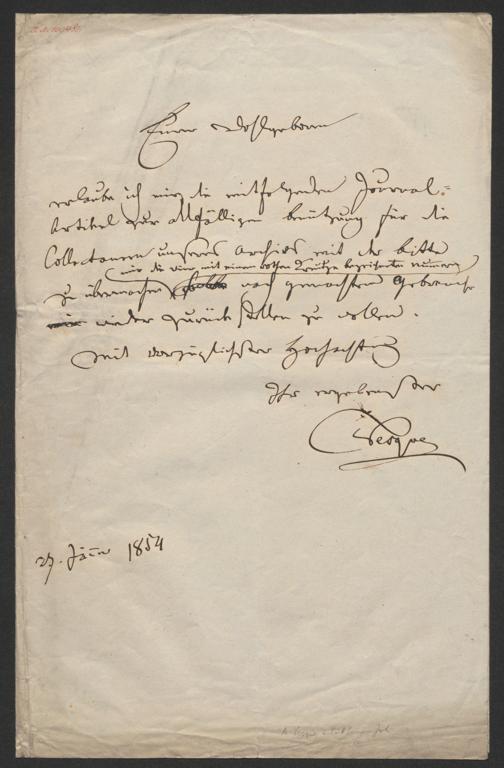 Euer Wohlgeboren
erlaube ich mir die mitfolgenden Journal-
Artikel zur allfälligen Benützung für die
Collectaneen unseres Archivs mit der Bitte
mir die mit einem rothen Kreutze bezeichneten Nummern
zu übermachen nach gemachtem Gebrauche
wieder zurück stellen zu wollen.
Mit vorzüglichster Hochachtung
Ihr ergebenster
Vesque
27. Jänner 1854